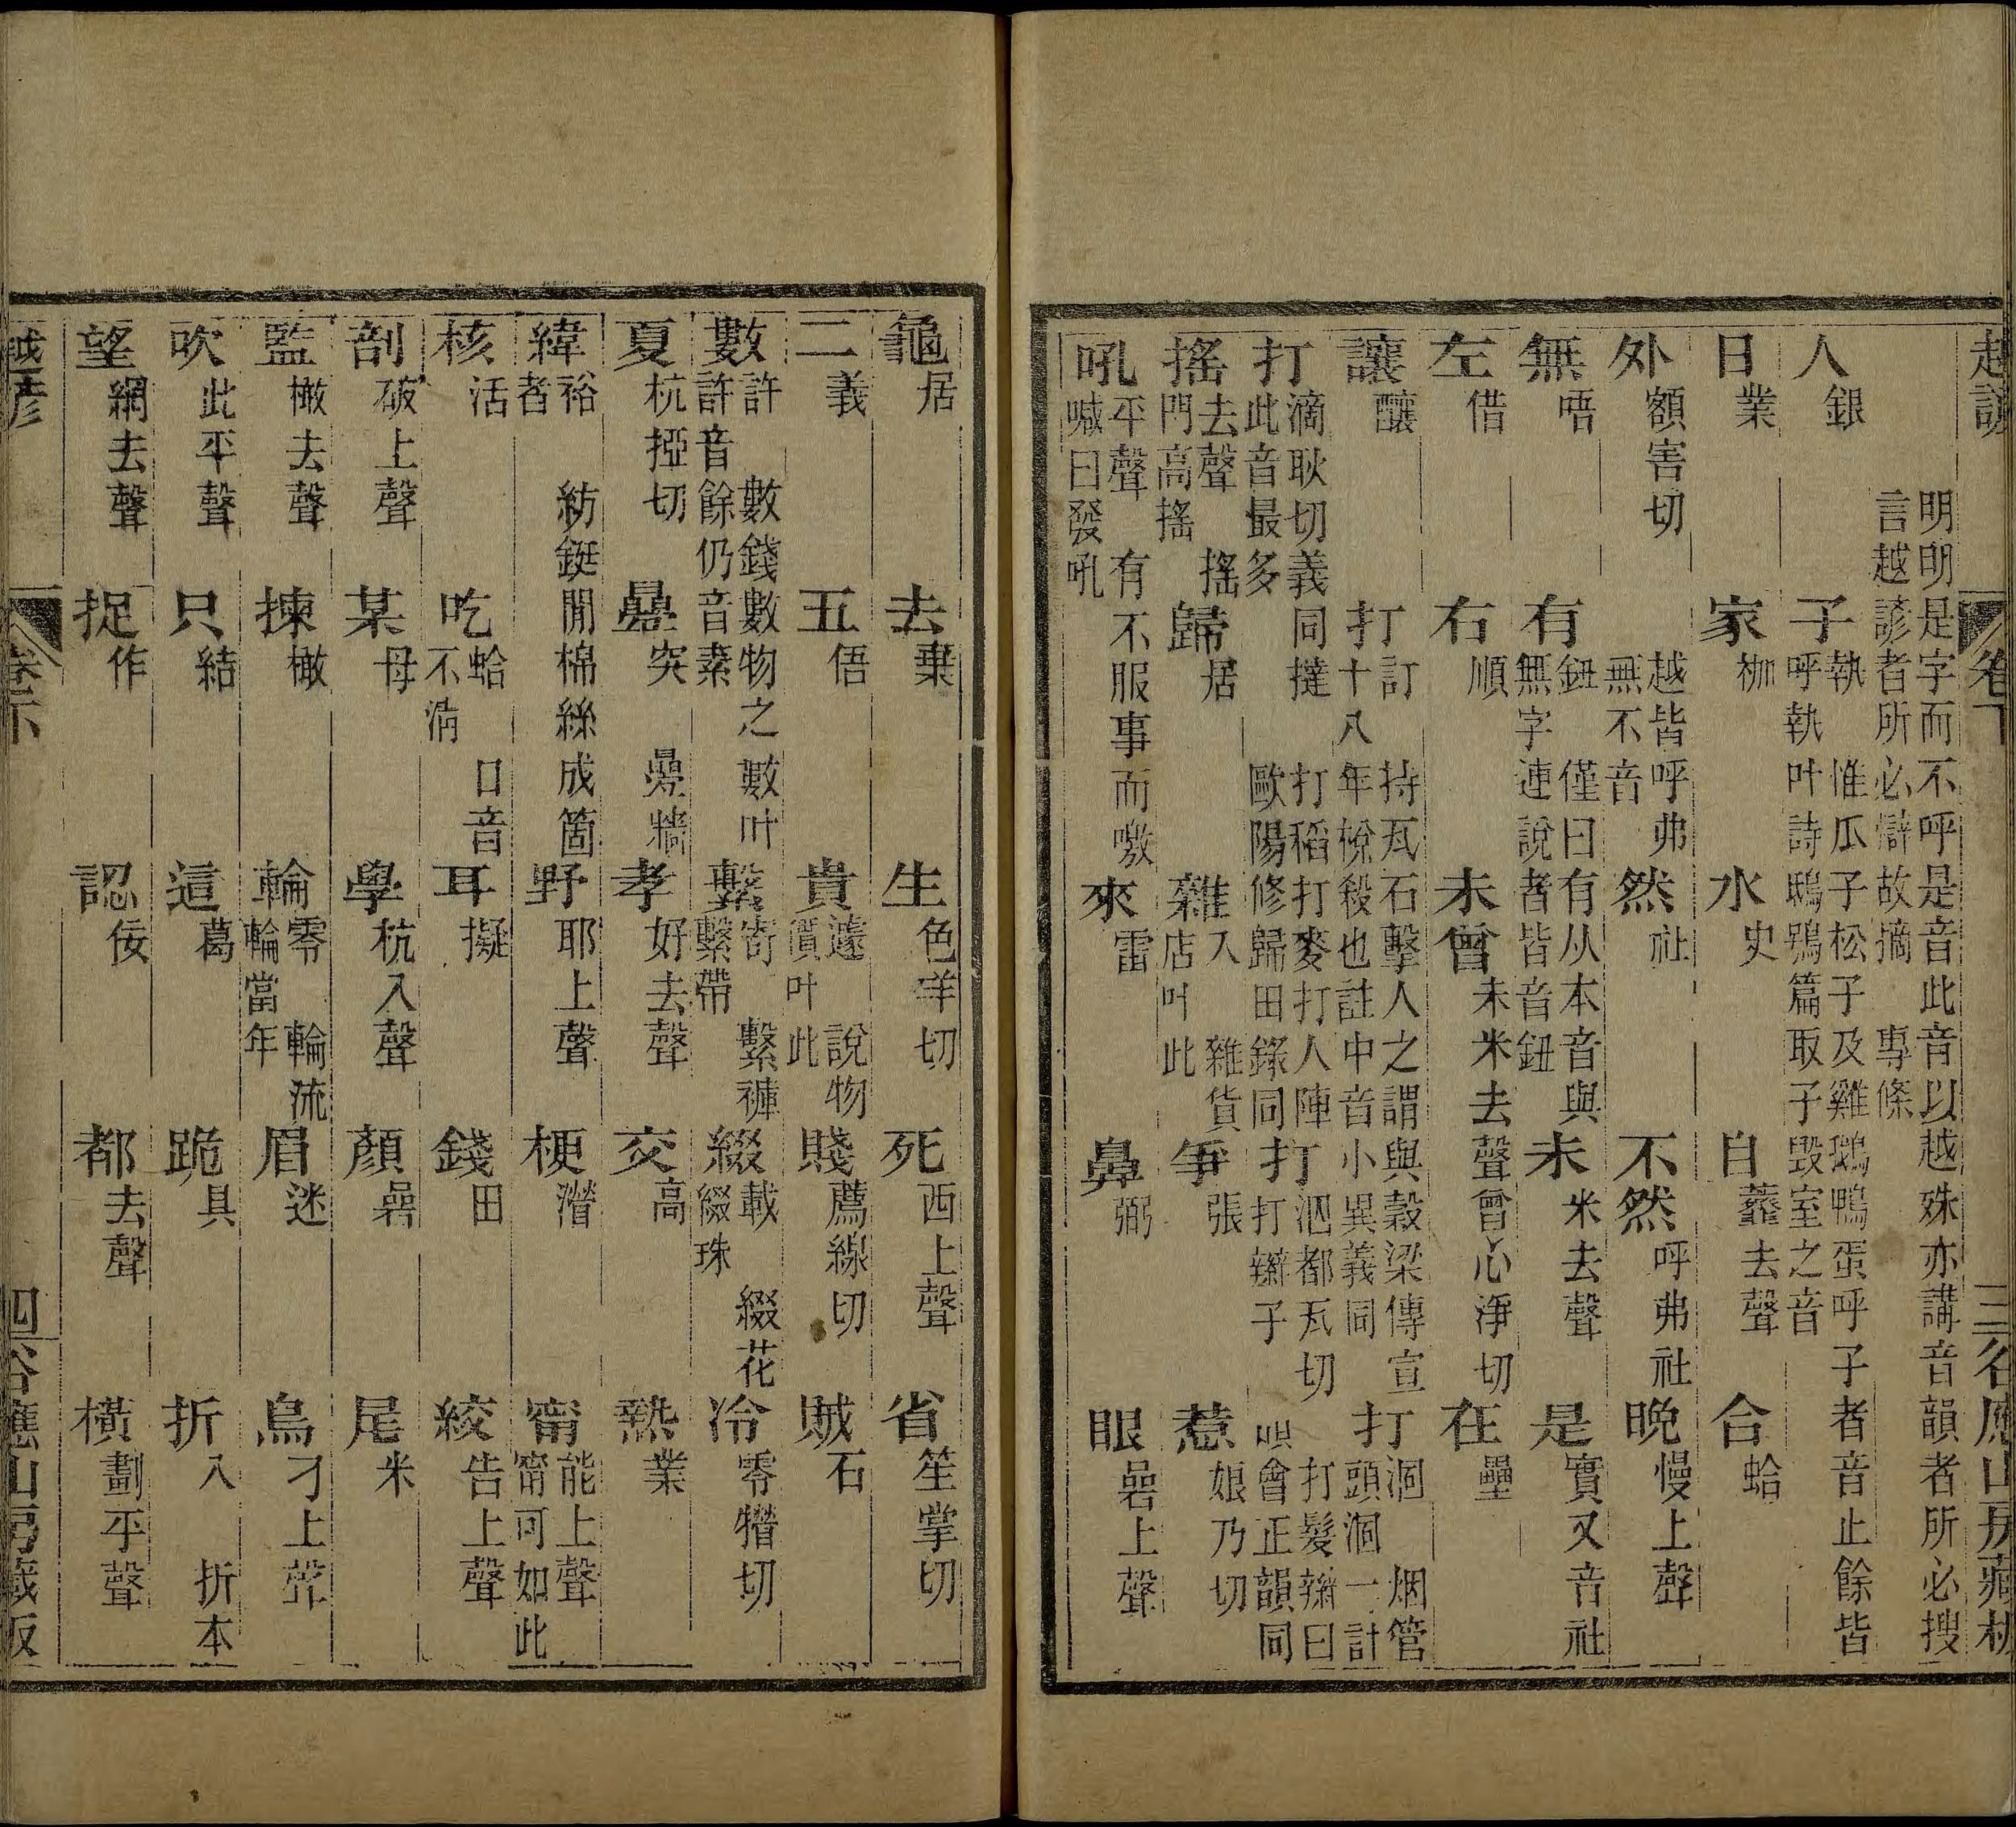 越諺 卷下 三 谷應山房藏板
明明是字而不呼是音此音以越殊亦講音韻者所必搜
言越諺者所必辯故摘專條
人 銀 子 執 惟瓜子松子及雞鵝鴨蛋呼子者音止餘皆呼執叶詩鴟鴞篇取子毀室之音
日 業 家 枷 水 史 自 蕋去聲 合 蛤
外 額害切 無 越皆呼弗無不音 然 社 不然 呼弗社 晚 慢上聲
無 唔 有 鈕 僅曰有从本音與無字連說者皆音鈕 未 米去聲 是 實又音社
左 借 右 順 未曾 未米去聲曾心淨切 在 壘
讓 釀 打 訂 持瓦石擊人之謂與穀梁傳宣十八年梲殺也註中音小異義同 打 涸 烟管頭涸一計
打 滴耿切義同撻 打稻打麥打人陣此音最多歐陽修歸田錄同 打 泗都瓦切 打辮子 打髮辮曰 會正韻同
搖 去聲 搖門高搖 歸 居 雜 入 雜貨店叶此 爭 張 惹 娘乃切
吼 平聲 有不服事而噭喊曰發吼 來 雷 鼻 弼 眼 喦上聲
龜 居 去 棄 生 色羊切 死 西上聲 省 笙掌切
二 義 五 俉 貴 遽 說物價叶此 賤 薦線切 賊 石
數 許 數錢數物之數叶許音餘仍音素 繫 寄 繫褲繫帶 綴 載 綴花綴珠 冷 零㸧切
夏 杭掗切 鼻 突 鼻牆 孝 好去聲 交 高 熱 業
緯 裕 紡鋌閒棉絲成箇者 野 耶上聲 梗 㵐 甯 能上聲 甯可如此
核 活 吃 蛤 口音不淸 耳 擬 錢 田 絞 告上聲
剖 破上聲 某 母 學 杭入聲 顏 喦 尾 米
監 橄去聲 揀 橄 輪 零 輪流輪當年 眉 迷 鳥 刁上聲
吹 此平聲 只 結 這 葛 跪 具 折 入 折本
望 網去聲 捉 作 認 佞 都 去聲 橫 劃平聲
越諺 卷下 四 谷應山房藏板